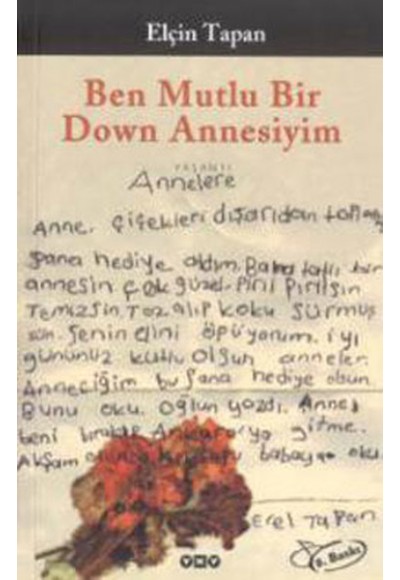 Elçin Tapan
Ben Mutlu Bir
Down Annesiyim
YAŞANTI
Annelere
Anne, çiçekleri dışarıdan
Şana hediye aldım. Bana tatlı bir
annesin çok güzel. Pırıl Pırılsın
Temizsin. Toz alıp koku sürmüş
sün. Şenin elini öpüyorum. iyi
gününüz kutlu olsun anneler.
Anneciğim bu Şana hediye olsun.
Bunu oku. Oğlun yazdı. Anne
beni bırakıp Ankara'ya gitme.
Akşam babaya oku
Erel Tapan
YKY
Baskı